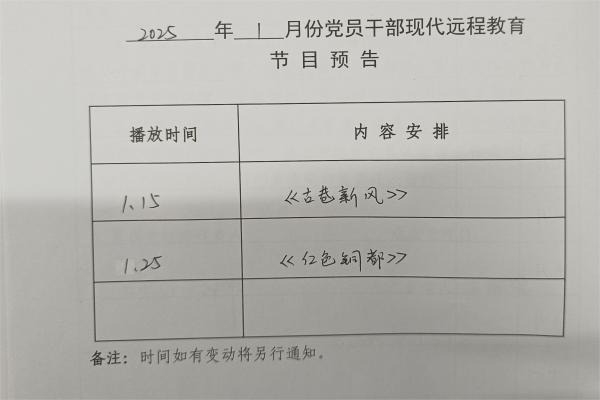 2025 年 1 月份党员干部现代远程教育
节目预告
播放时间 内容安排
1.15 《古巷新风》
1.25 《红色铜都》
备注：时间如有变动将另行通知。